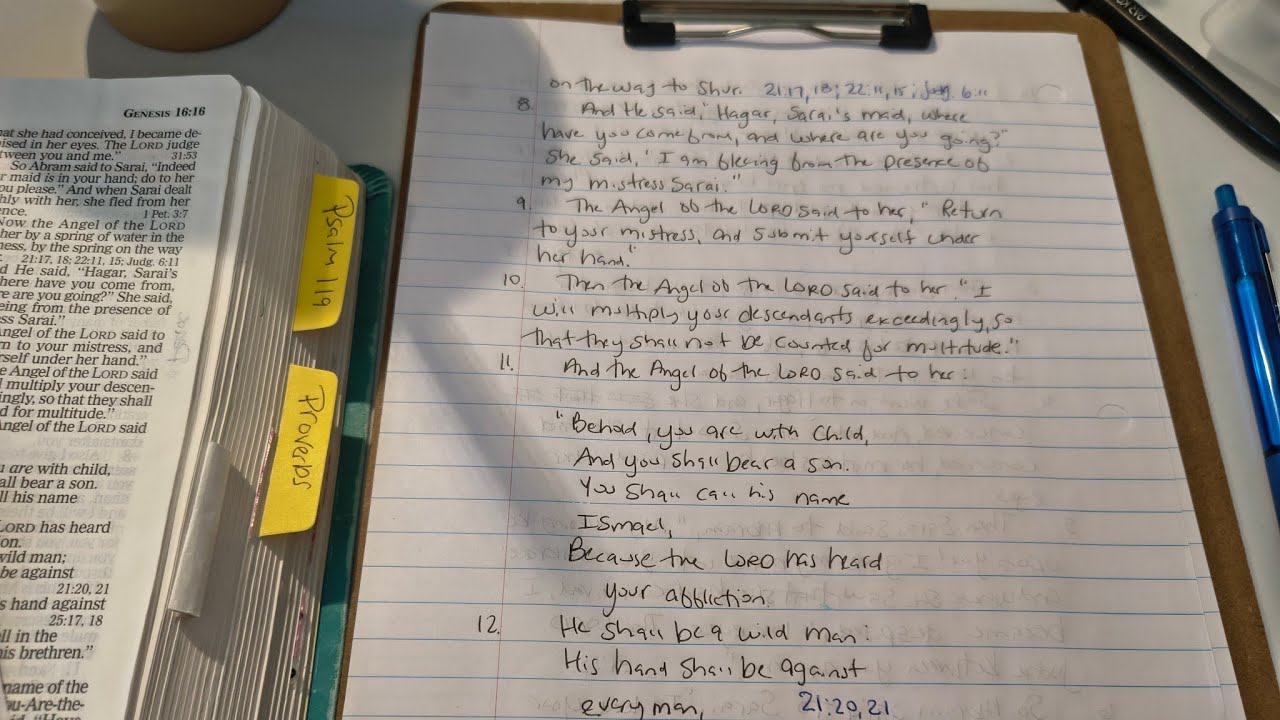 GENESIS 16:16
at she had conceived, I became de-
ised in her eyes. The LORD judge
tween you and me."
31:53
So Abram said to Sarai, "Indeed
r maid is in your hand; do to her
ou please." And when Sarai dealt
hly with her, she fled from her
ence.
1 Pet. 3:7
Now the Angel of the LORD
her by a spring of water in the
ness, by the spring on the way
21:17, 18; 22:11, 15; Judg. 6:11
d He said, "Hagar, Sarai's
here have you come from,
re are you going?" She said,
eing from the presence of
ss Sarai."
Angel of the LORD said to
rn to your mistress, and
rself under her hand."
e Angel of the LORD said
l multiply your descen-
ingly, so that they shall
d for multitude."
Angel of the LORD said
u are with child,
all bear a son.
ll his name
LORD has heard
ion.
wild man;
be against
21:20, 21
s hand against
25:17, 18
ll in the
his brethren."
name of the
ou-Are-the-
Psalm 119
Proverbs
on the way to Shur. 21:17, 18; 22:11, 15; Judg. 6:11
8. And He said, "Hagar, Sarai's maid, where
have you come from, and where are you going?"
She said, "I am fleeing from the presence of
my mistress Sarai."
9. The Angel of the LORD said to her, "Return
to your mistress, and submit yourself under
her hand."
10. Then the Angel of the LORD said to her. "I
will multiply your descendants exceedingly, so
that they shall not be counted for multitude."
11. And the Angel of the LORD said to her:
"Behold, you are with child,
And you shall bear a son.
You shall call his name
Ismael,
Because the LORD has heard
your affliction.
12. He shall be a wild man:
His hand shall be against
every man, 21:20, 21